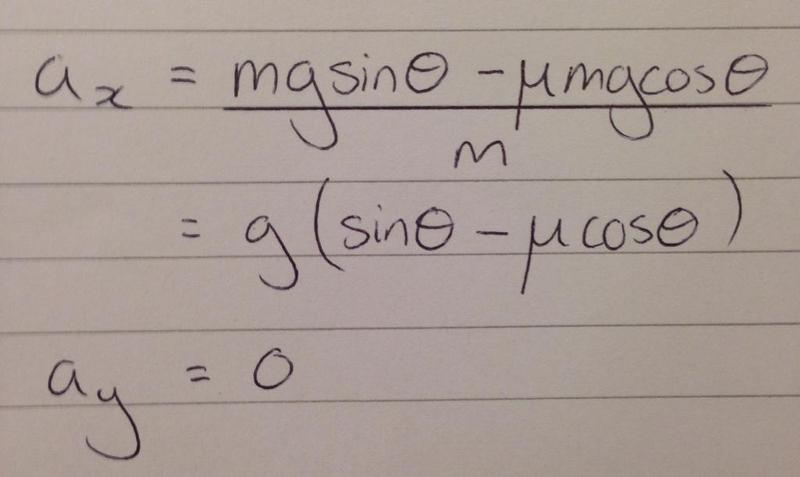 aₓ = mgsinθ - μmgcosθ
m
= g(sinθ - μcosθ)
a_y = 0